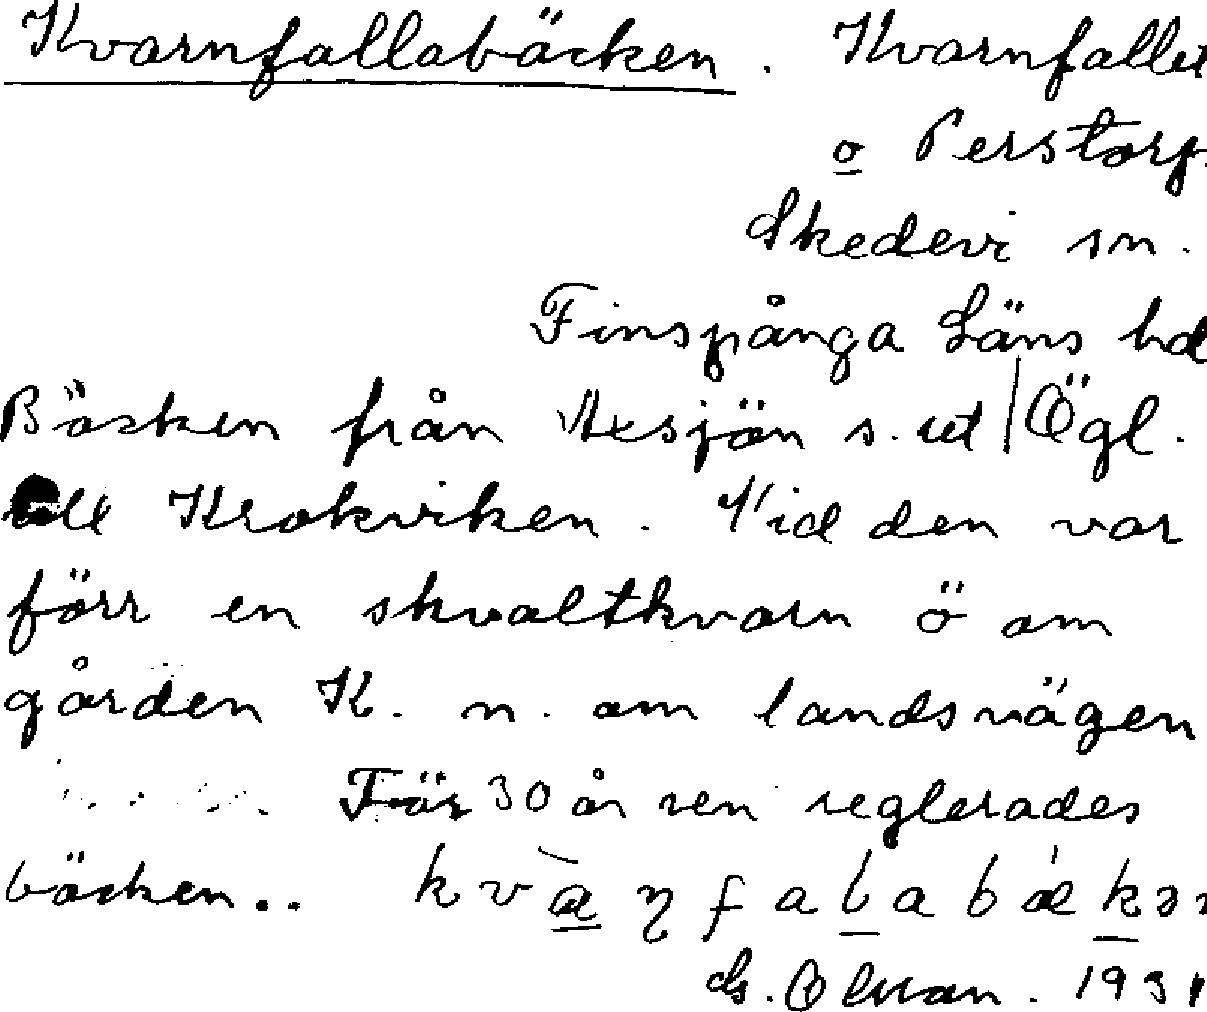 Kvarnfallabäcken. Kvarnfallet
o Perstorp.
Skedevi sn.
Finspånga Läns hd
Bäcken från Axsjön s. ut | Ögl.
till Krokviken. Vid den var
förr en skvaltkvarn ö om
gården K. n. om landsvägen
För 30 år sen reglerades
bäcken..
1931